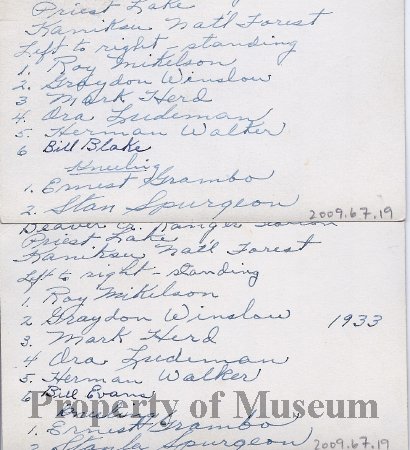 Priest Lake
Kaniksu Nat'l Forest
Left to right - standing
1. Roy Mikelson
2. Graydon Winslow
3 Mark Herd
4. Ora Ludeman
5. Herman Walker
6 Bill Blake
Kneeling
1. Ernest Grambo
2. Stan Spurgeon
2009.67.19
Beaver Cr. Ranger Station
Priest Lake
Kaniksu Nat'l Forest
Left to right - Standing
1. Roy Mikelson
2 Graydon Winslow 1933
3. Mark Herd
4 Ora Ludeman
5. Herman Walker
6 Bill Evans
Property of Museum
1. Ernest Grambo
2 Stanla Spurgeon
2009.67.19